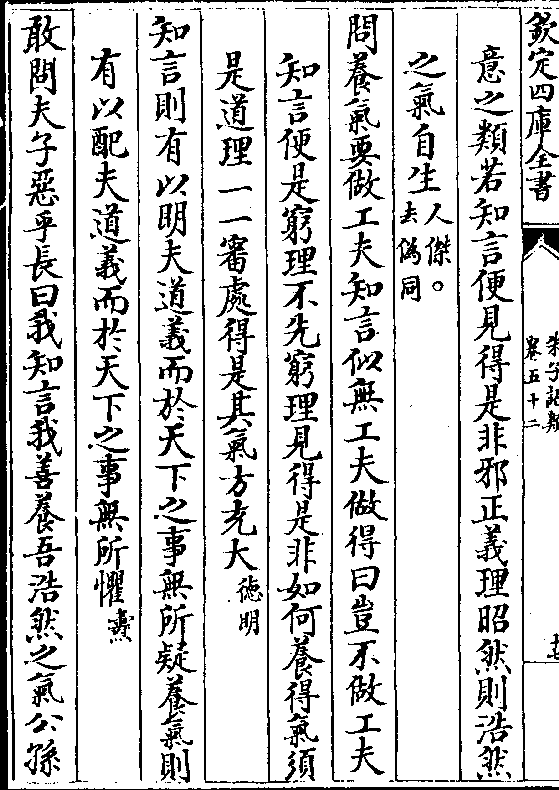 欽定四庫全書
朱子語類
卷五十二
意之類若知言便見得是非邪正義理昭然則浩然
之氣自生人傑。去偽同
問養氣要做工夫知言似無工夫做得曰豈不做工夫
知言便是窮理不先窮理見得是非如何養得氣須
是道理一一審處得是其氣方充大德明
知言則有以明夫道義而於天下之事無所疑養氣則
有以配夫道義而於天下之事無所懼燾
敢問夫子惡乎長曰我知言我善養吾浩然之氣公孫